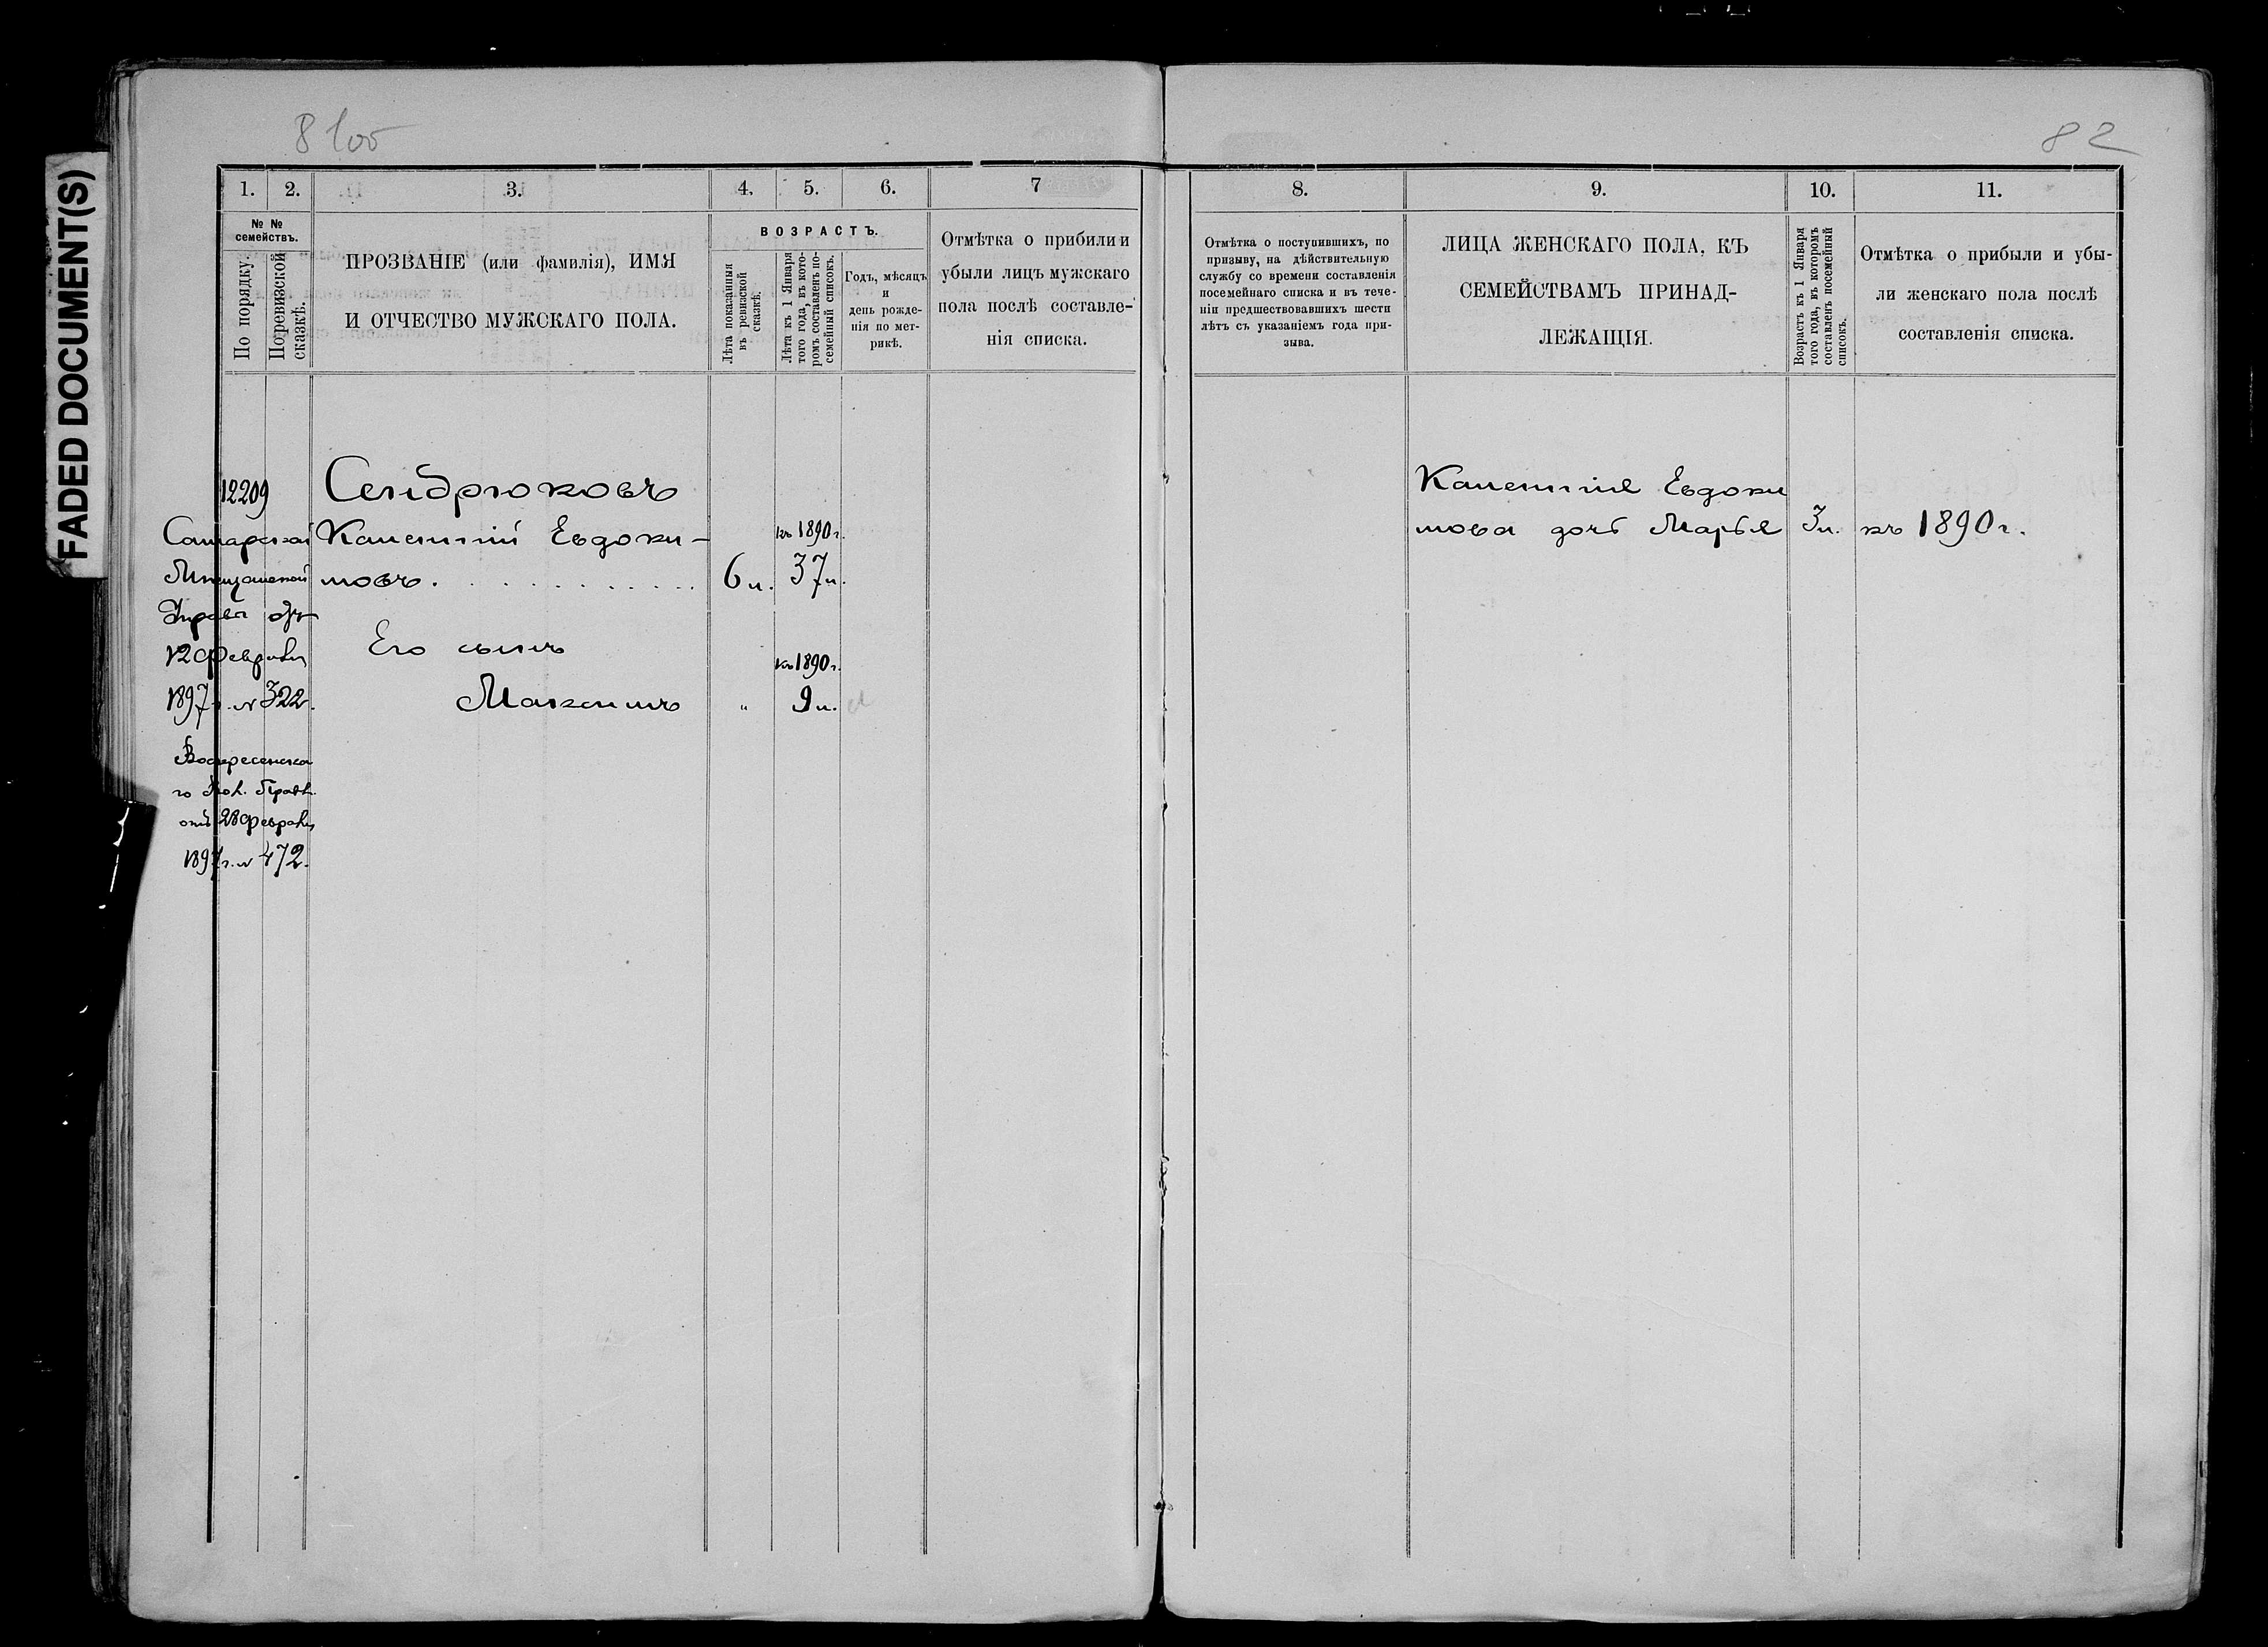 FADED DOCUMENT(S)
82
1.
2.
3.
4.
5.
6.
7
8.
9.
10.
11.
№ №
семействъ.
По порядку.
По ревизской
сказкѣ.
ПРОЗВАНІЕ (или фамилія), ИМЯ
И ОТЧЕСТВО МУЖСКАГО ПОЛА.
ВОЗРАСТЪ.
Лѣта показанныя
въ ревизской
сказкѣ.
Лѣта къ 1 Января
того года, въ кото-
ромъ составленъ по-
семейный списокъ.
Годъ, мѣсяцъ
и
день рожде-
нія по мет-
рикѣ.
Отмѣтка о прибыли и
убыли лицъ мужскаго
пола послѣ составле-
нія списка.
Отмѣтка о поступившихъ, по
призыву, на дѣйствительную
службу со времени составленія
посемейнаго списка и въ тече-
ніи предшествовавшихъ шести
лѣтъ съ указаніемъ года при-
зыва.
ЛИЦА ЖЕНСКАГО ПОЛА, КЪ
СЕМЕЙСТВАМЪ ПРИНАД-
ЛЕЖАЩІЯ.
Возрастъ къ 1 Января
того года, въ которомъ
составленъ посемейный
списокъ.
Отмѣтка о прибыли и убы-
ли женскаго пола послѣ
составленія списка.
12209
Самарской
Мѣщанской
Управы отъ
12 Февраля
1897 г. № 322.
Воскресенска
го Вол. Правл.
отъ 28 Февраля
1897 г. № 472.
Сендрюковъ
Каленитій Евдоки-
мовъ . . . . . . . . . . .
6 л.
къ 1890 г.
37 л.
Его сынъ
Максимъ
"
къ 1890 г.
9 л.
Евдоки
мова дочь Марья
3 л.
къ 1890 г.